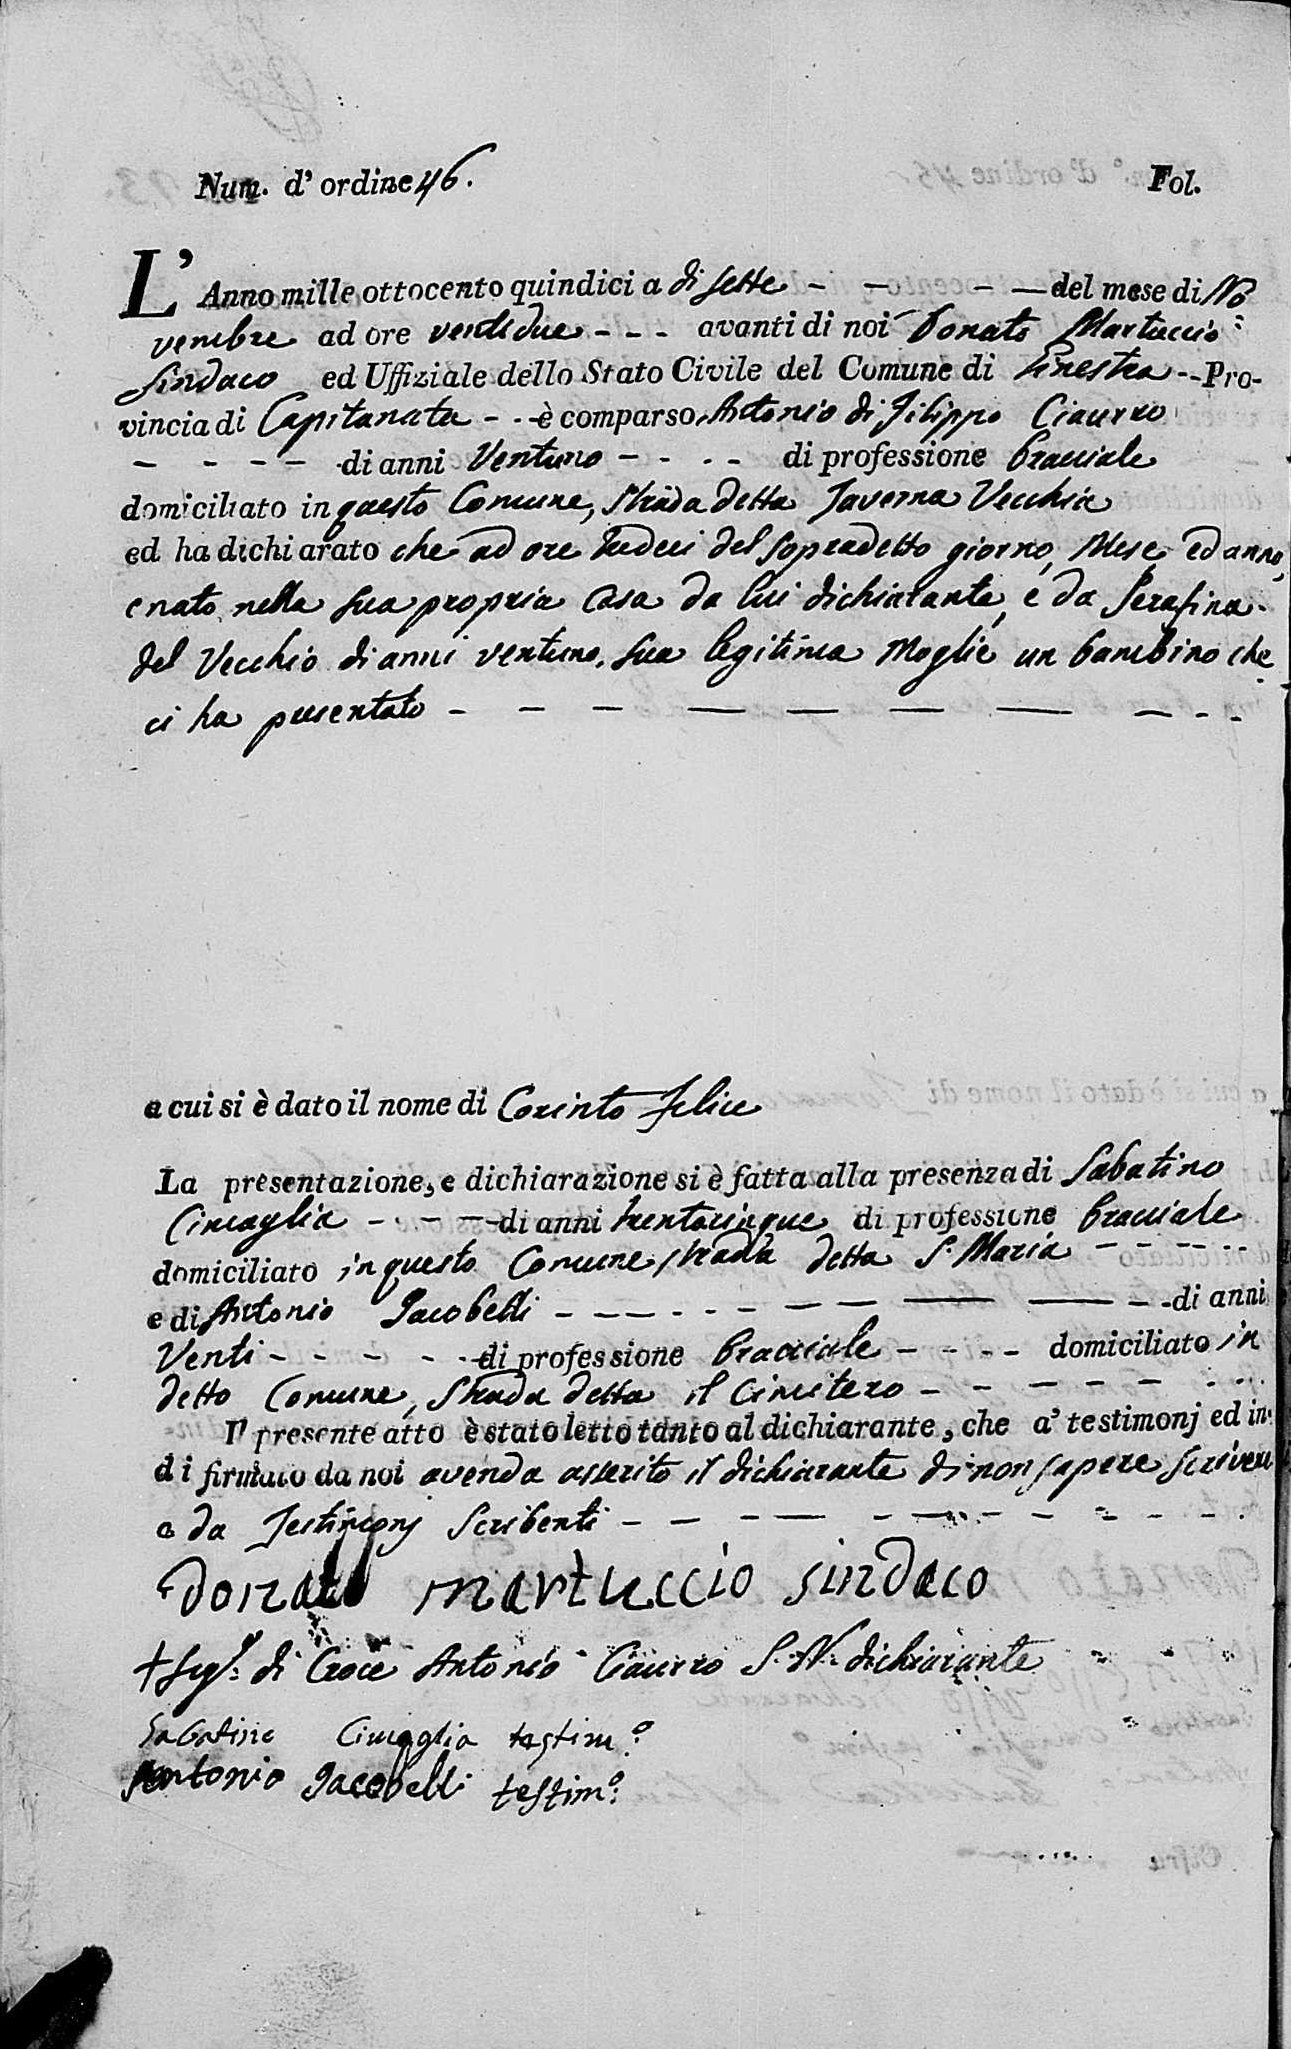 Num. d' ordine 46.
Fol.
L' Anno mille ottocento quindici a di sette - - - - del mese di No
vembre ad ore ventidue - - - avanti di noi Donato Martuccio
Sindaco ed Uffiziale dello Stato Civile del Comune di Ginestra - - Pro-
vincia di Capitanata - - - è comparso Antonio di Filippo Ciaurro
- - - - - di anni Ventuno - - - - di professione bracciale
domiciliato in questo Comune, strada detta Taverna Vecchia
ed ha dichiarato che ad ore tredeci del sopradetto giorno, Mese, ed anno,
è nato nella sua propria casa da lui dichiarante, e da Serafina
del Vecchio di anni ventuno, sua legitima Moglie un bambino che
ci ha presentato - - - - - - - - - -
a cui si è dato il nome di Corinto Felice
La presentazione, e dichiarazione si è fatta alla presenza di Sabatino
Cimaglia - - - - di anni trentacinque di professione bracciale
domiciliato in questo Comune strada detta S. Maria - - - - - -
e di Antonio Jacobelli - - - - - - - - - - di anni
Venti - - - - - - di professione bracciale - - - - domiciliato in
detto Comune, Strada detta il Cimitero - - - - - - -
Il presente atto è stato letto tanto al dichiarante, che a' testimonj ed in-
di firmato da noi avendo asserito il dichiarante di non sapere scrivere
e da Testimonj Scribenti - - - - - - - - - - -
Donato martuccio sindaco
+ Seg.º di Croce Antonio Ciaurro S. N. dichiarante
Sabatino Cimaglia testim.º
Antonio Jacobelli testim.º